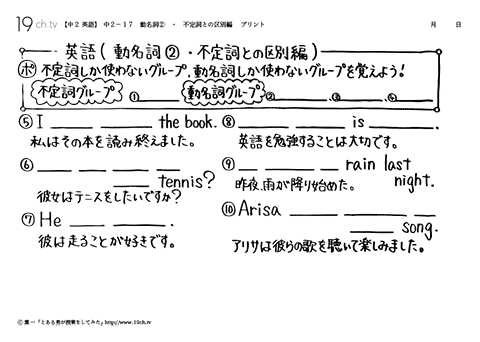 19 ch.tv 【中2 英語】 中2－17 動名詞② ・ 不定詞との区別編 プリント 月 日
英語( 動名詞②・不定詞との区別編 )
ポ 不定詞しか使わないグループ、動名詞しか使わないグループを覚えよう!
不定詞グループ ①____ 動名詞グループ ②____.③____.④____
⑤ I ____ ____ the book.
私はその本を読み終えました。
⑥ ____ ____ ____ ____
____ tennis?
彼女はテニスをしたいですか?
⑦ He ____ ____.
彼は走ることが好きです。
⑧ ____ ____ is ____.
英語を勉強することは大切です。
⑨ ____ ____ ____ rain last
night.
昨夜、雨が降り始めた。
⑩ Arisa ____ ____ ____
____ song.
アリサは彼らの歌を聴いて楽しみました。
© 葉一「とある男が授業をしてみた」http://www.19ch.tv